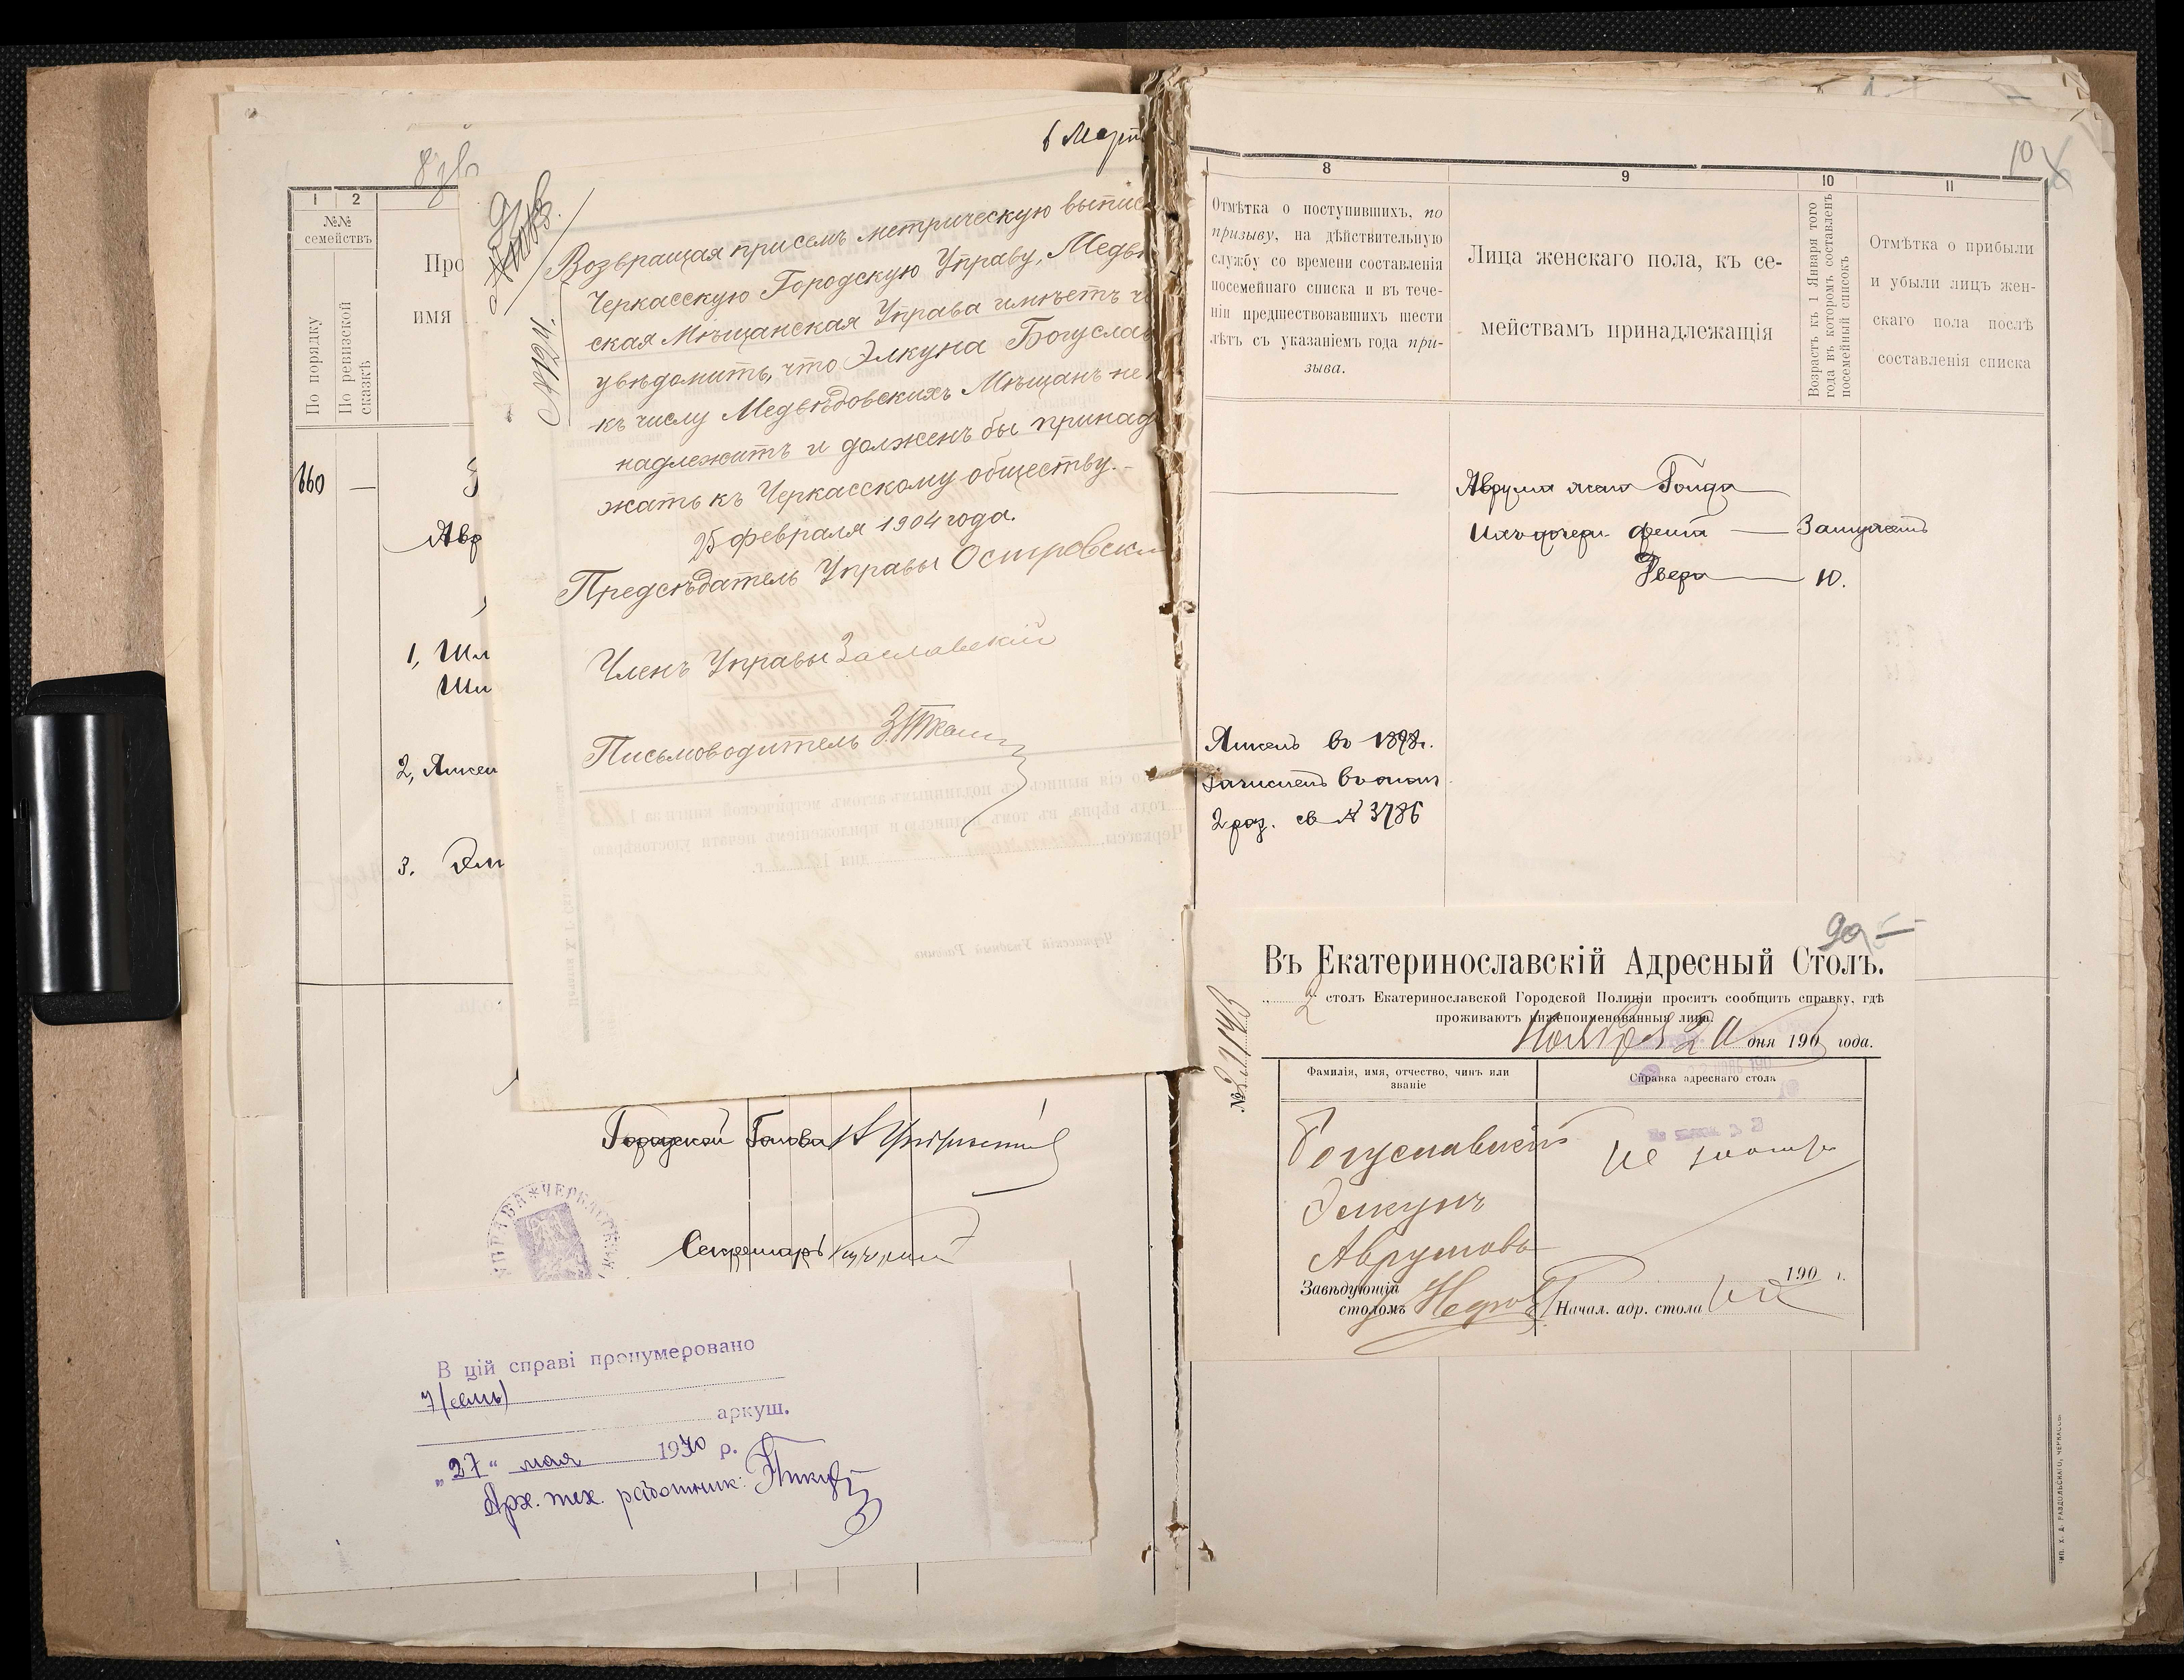 8зв
1
2
№№
семействъ
По порядку
По ревизской
сказкѣ
Про
имя
160
—
Авр
1, Шл
Шл
2, Янкел
3. Элк
6 Март
9зв
№ 124.
Возвращая присемъ метрическую выпис
Черкасскую Городскую Управу, Медвѣ
ская Мѣщанская Управа имѣетъ че
увѣдомить, что Элкуна Богуслав
къ числу Медвѣдовскихъ Мѣщанъ не
надлежитъ и долженъ бы принад
жать къ Черкасскому обществу.
25 февраля 1904 года.
Предсѣдатель Управы Островск
Членъ Управы Заславскій
Письмоводитель
Городской Голова
УПРАВА * ЧЕРКАССКАЯ
Секретарь
В цій справі пронумеровано
7 (семь)
аркуш.
„27“ мая 1970 р.
Арх. тех. работник:
10
8
9
10
11
Отмѣтка о поступившихъ, по
призыву, на дѣйствительную
службу со времени составленія
посемейнаго списка и въ тече-
ніи предшествовавшихъ шести
лѣтъ съ указаніемъ года при-
зыва.
Лица женскаго пола, къ се-
мействамъ принадлежащія
Возрастъ къ 1 Января того
года въ которомъ составленъ
посемейный списокъ
Отмѣтка о прибыли
и убыли лицъ жен-
скаго пола послѣ
составленія списка
Аврума жена Голда
Ихъ дочери Фейга — Замужемъ
Двера — 10.
Янкель въ 1898г.
зачисленъ въ опол.
2 раз. св № 3786
9а
Въ Екатеринославскій Адресный Столъ.
2 столъ Екатеринославской Городской Полиціи проситъ сообщить справку, гдѣ
проживаютъ нижепоименованныя лица.
Ноября 20 дня 190 года.
Фамилія, имя, отчество, чинъ или
званіе
Справка адреснаго стола
Богуславскій
Элкунъ
Аврумовъ
не значр
Завѣдующій
столомъ
190 г.
Начал. адр. стола
ТИП. Х. Д. РАЗДОЛЬСКАГО, ЧЕРКАССЫ